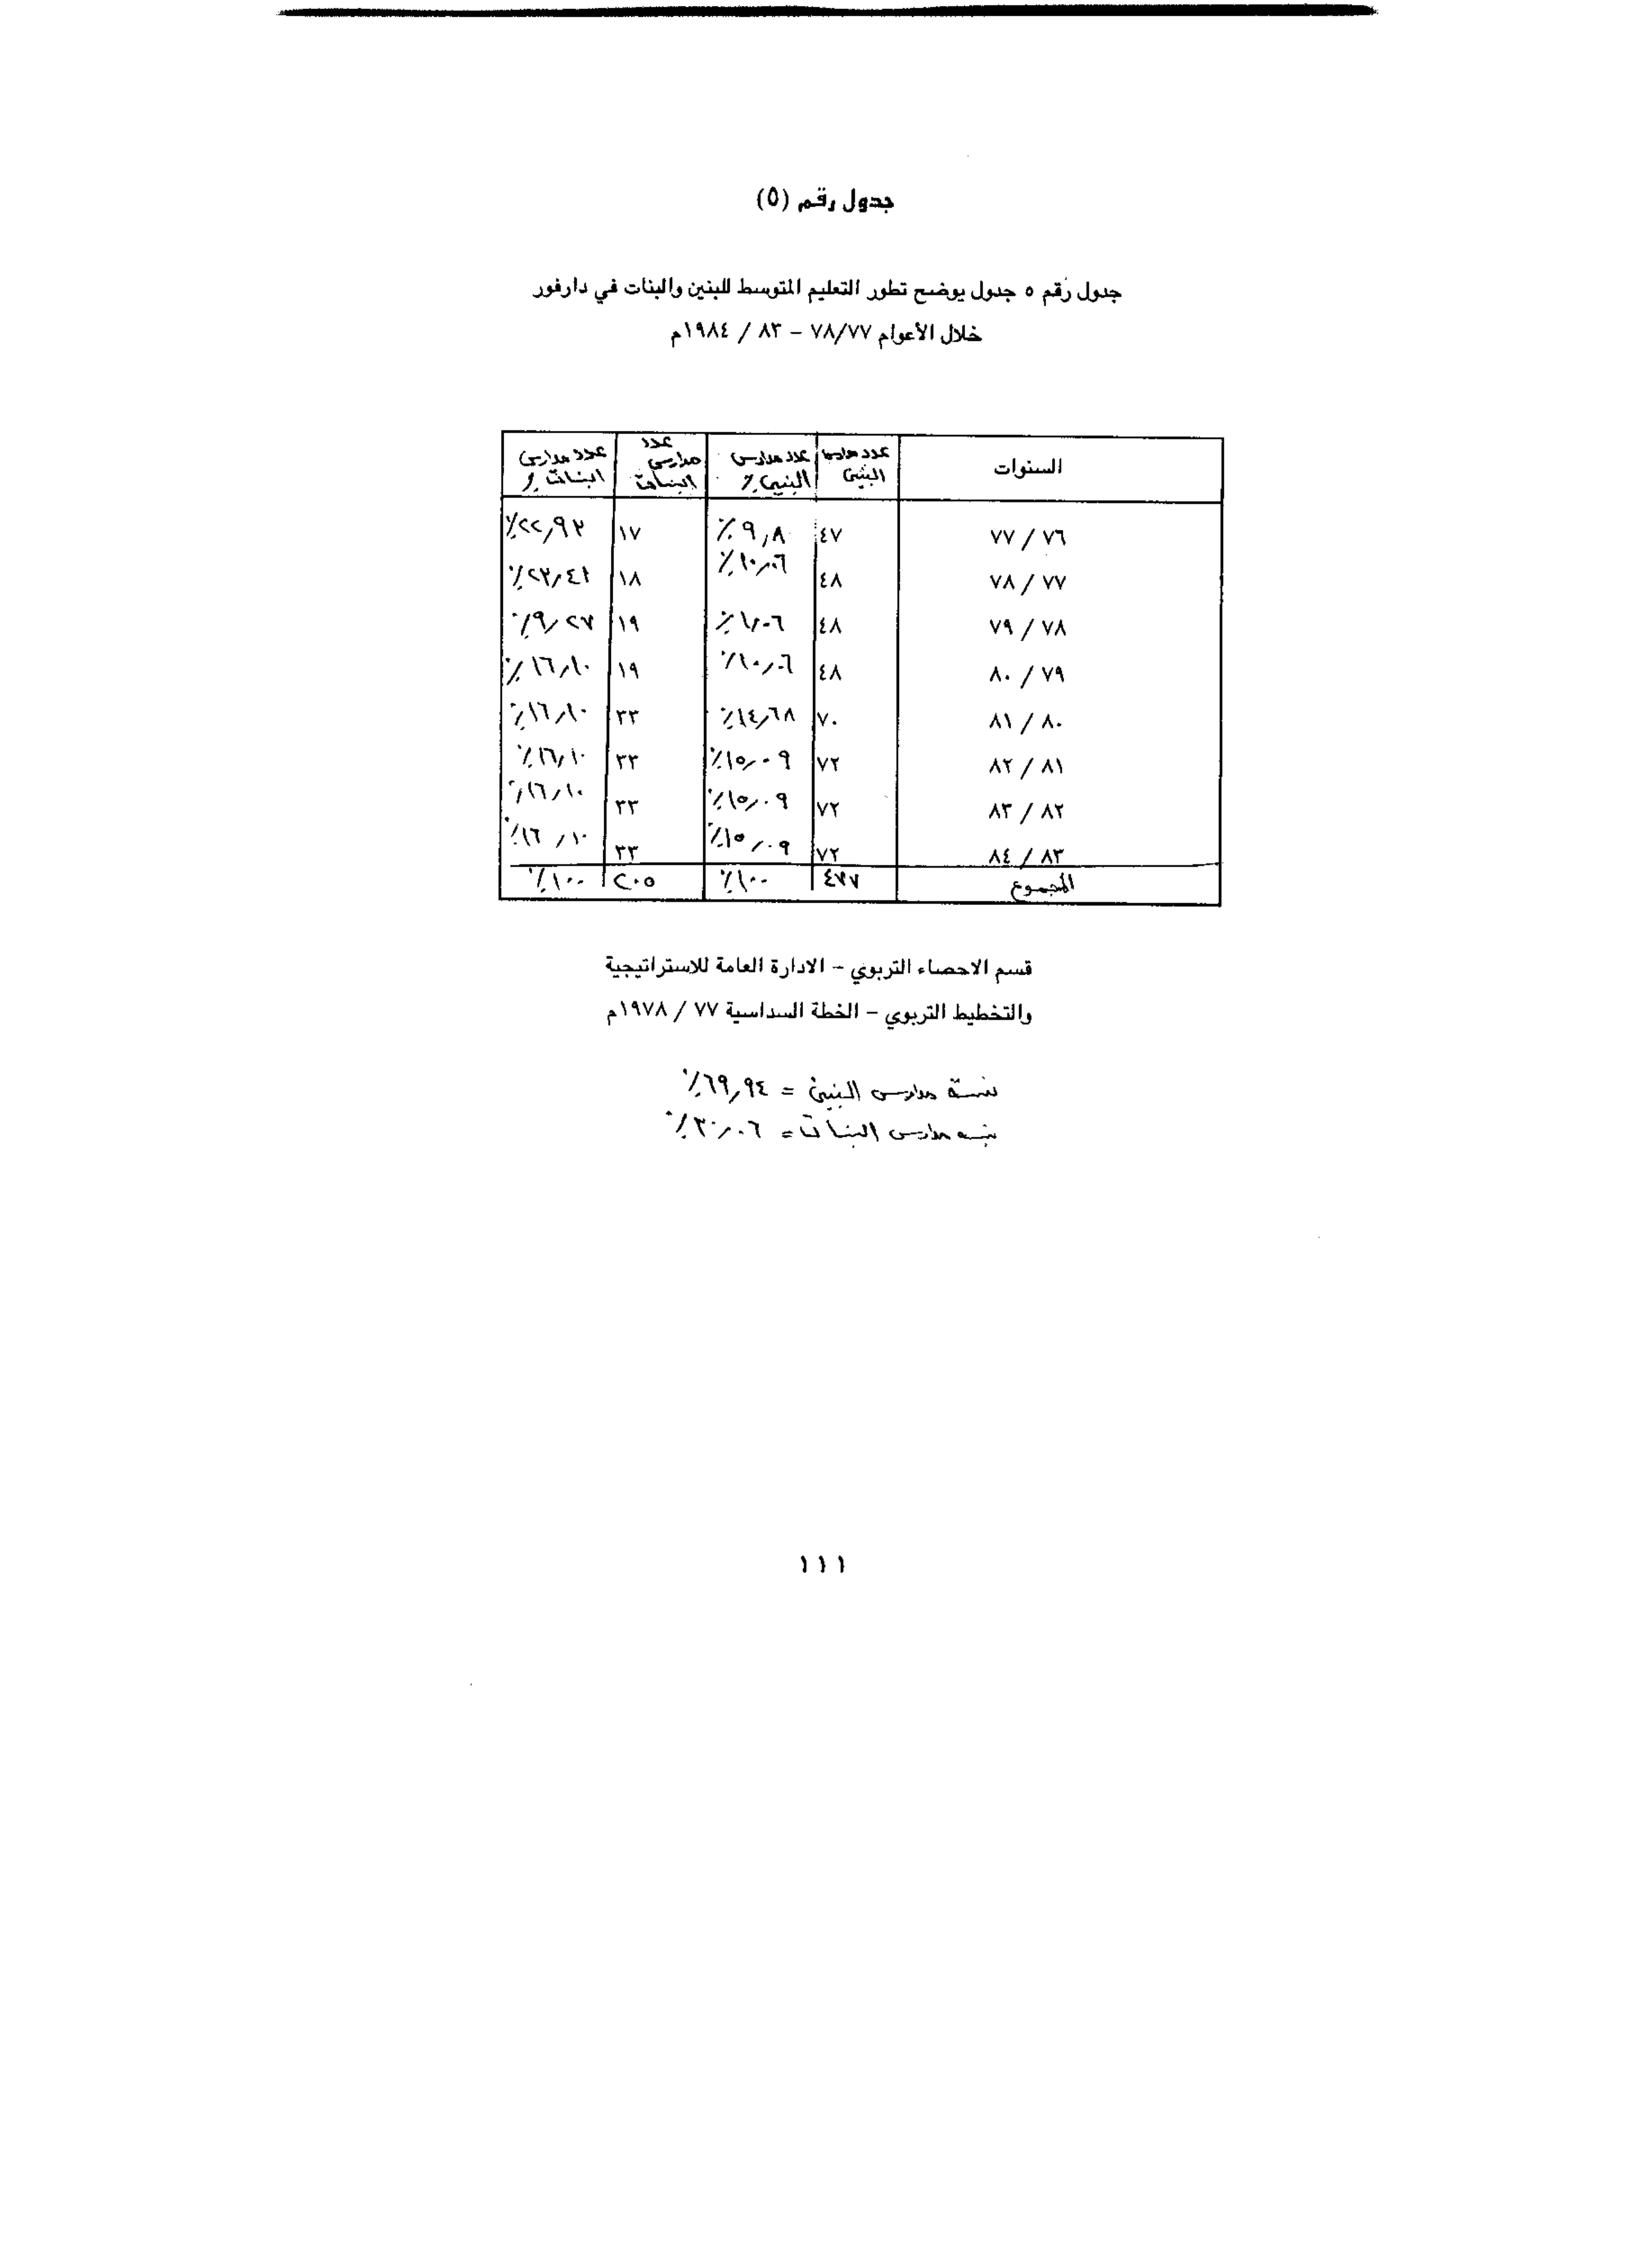 جدول رقم (٥)
جدول رقم ٥ جدول يوضح تطور التعليم المتوسط للبنين والبنات في دارفور
خلال الأعوام ٧٨/٧٧ – ٨٣ / ١٩٨٤م
السنوات عدد مدارس البنين عدد مدارس البنين ٪ عدد مدارس البنات عدد مدارس البنات ٪
٧٦ / ٧٧ ٤٧ ٩,٨٪ ١٧ ٢٢,٩٢٪
٧٧ / ٧٨ ٤٨ ١٠,٠٦٪ ١٨ ٢٣,٤١٪
٧٨ / ٧٩ ٤٨ ١٠,٠٦٪ ١٩ ٩,٢٧٪
٧٩ / ٨٠ ٤٨ ١٠,٠٦٪ ١٩ ١٦,١٠٪
٨٠ / ٨١ ٧٠ ١٤,٦٨٪ ٣٣ ١٦,١٠٪
٨١ / ٨٢ ٧٢ ١٥,٠٩٪ ٣٣ ١٦,١٠٪
٨٢ / ٨٣ ٧٢ ١٥,٠٩٪ ٣٣ ١٦,١٠٪
٨٣ / ٨٤ ٧٢ ١٥,٠٩٪ ٣٣ ١٦,١٠٪
المجموع ٤٧٧ ١٠٠٪ ٢٠٥ ١٠٠٪
قسم الاحصاء التربوي – الادارة العامة للاستراتيجية
والتخطيط التربوي – الخطة السداسية ٧٧ / ١٩٧٨م
نسبة مدارس البنين = ٦٩,٩٤٪
نسبة مدارس البنات = ٣٠,٠٦٪
١١١